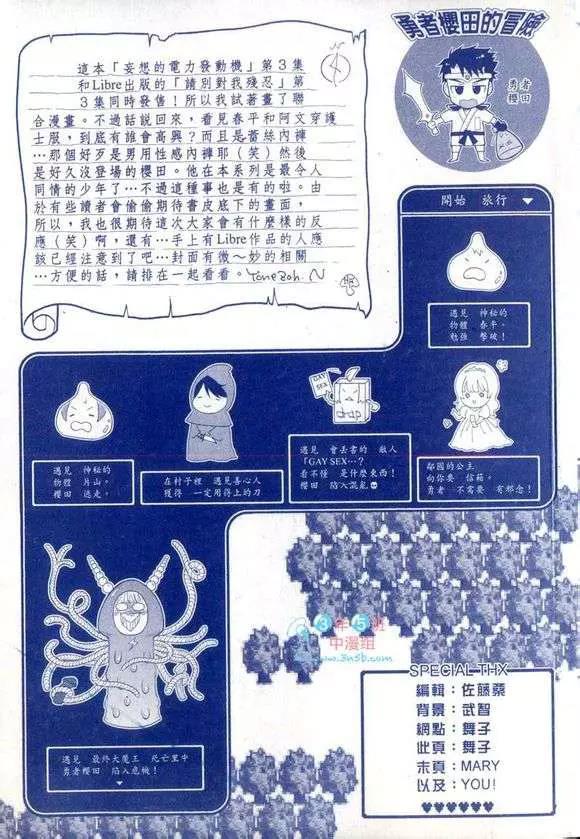 勇者櫻田的冒險
這本「妄想的電力發動機」第3集
和Libre出版的「請別對我殘忍」第
3集同時發售！所以我試著畫了聯
合漫畫。不過話說回來，看見春平和阿文穿護
士服，到底有誰會高興？而且是蕾絲內褲
…那個好歹是男用性感內褲耶（笑）然後
是好久沒登場的櫻田。他在本系列是最令人
同情的少年了…不過這種事也是有的啦。由
於有些讀者會偷偷期待書皮底下的畫面，
所以，我也很期待這次大家會有什麼樣的反
應（笑）啊，還有…手上有Libre作品的人應
該已經注意到了吧…封面有微～妙的相關
…方便的話，請排在一起看看。
勇者
櫻田
開始 旅行 ▼
遇見 神秘的
物體 春平。
勉強 擊破！
鄰國的公主
向你要 信菇。
勇者 不需要 有邪念！
GAY
SEX
drap
遇見 會丟書的 敵人
「GAY SEX…？
看不懂 是什麼東西！
櫻田 陷入混亂
在村子裡 遇見善心人
獲得 一定用得上的刀
遇見 神秘的
物體 片山。
櫻田 逃走。
遇見 最終大魔王 死亡里中
勇者櫻田 陷入危機！
▼
3年5班
中漫組
www.3n5b.com
SPECIAL THX
編輯：佐藤桑
背景：武智
網點：舞子
此頁：舞子
末頁：MARY
以及：YOU!
♥♥♥♥♥♥